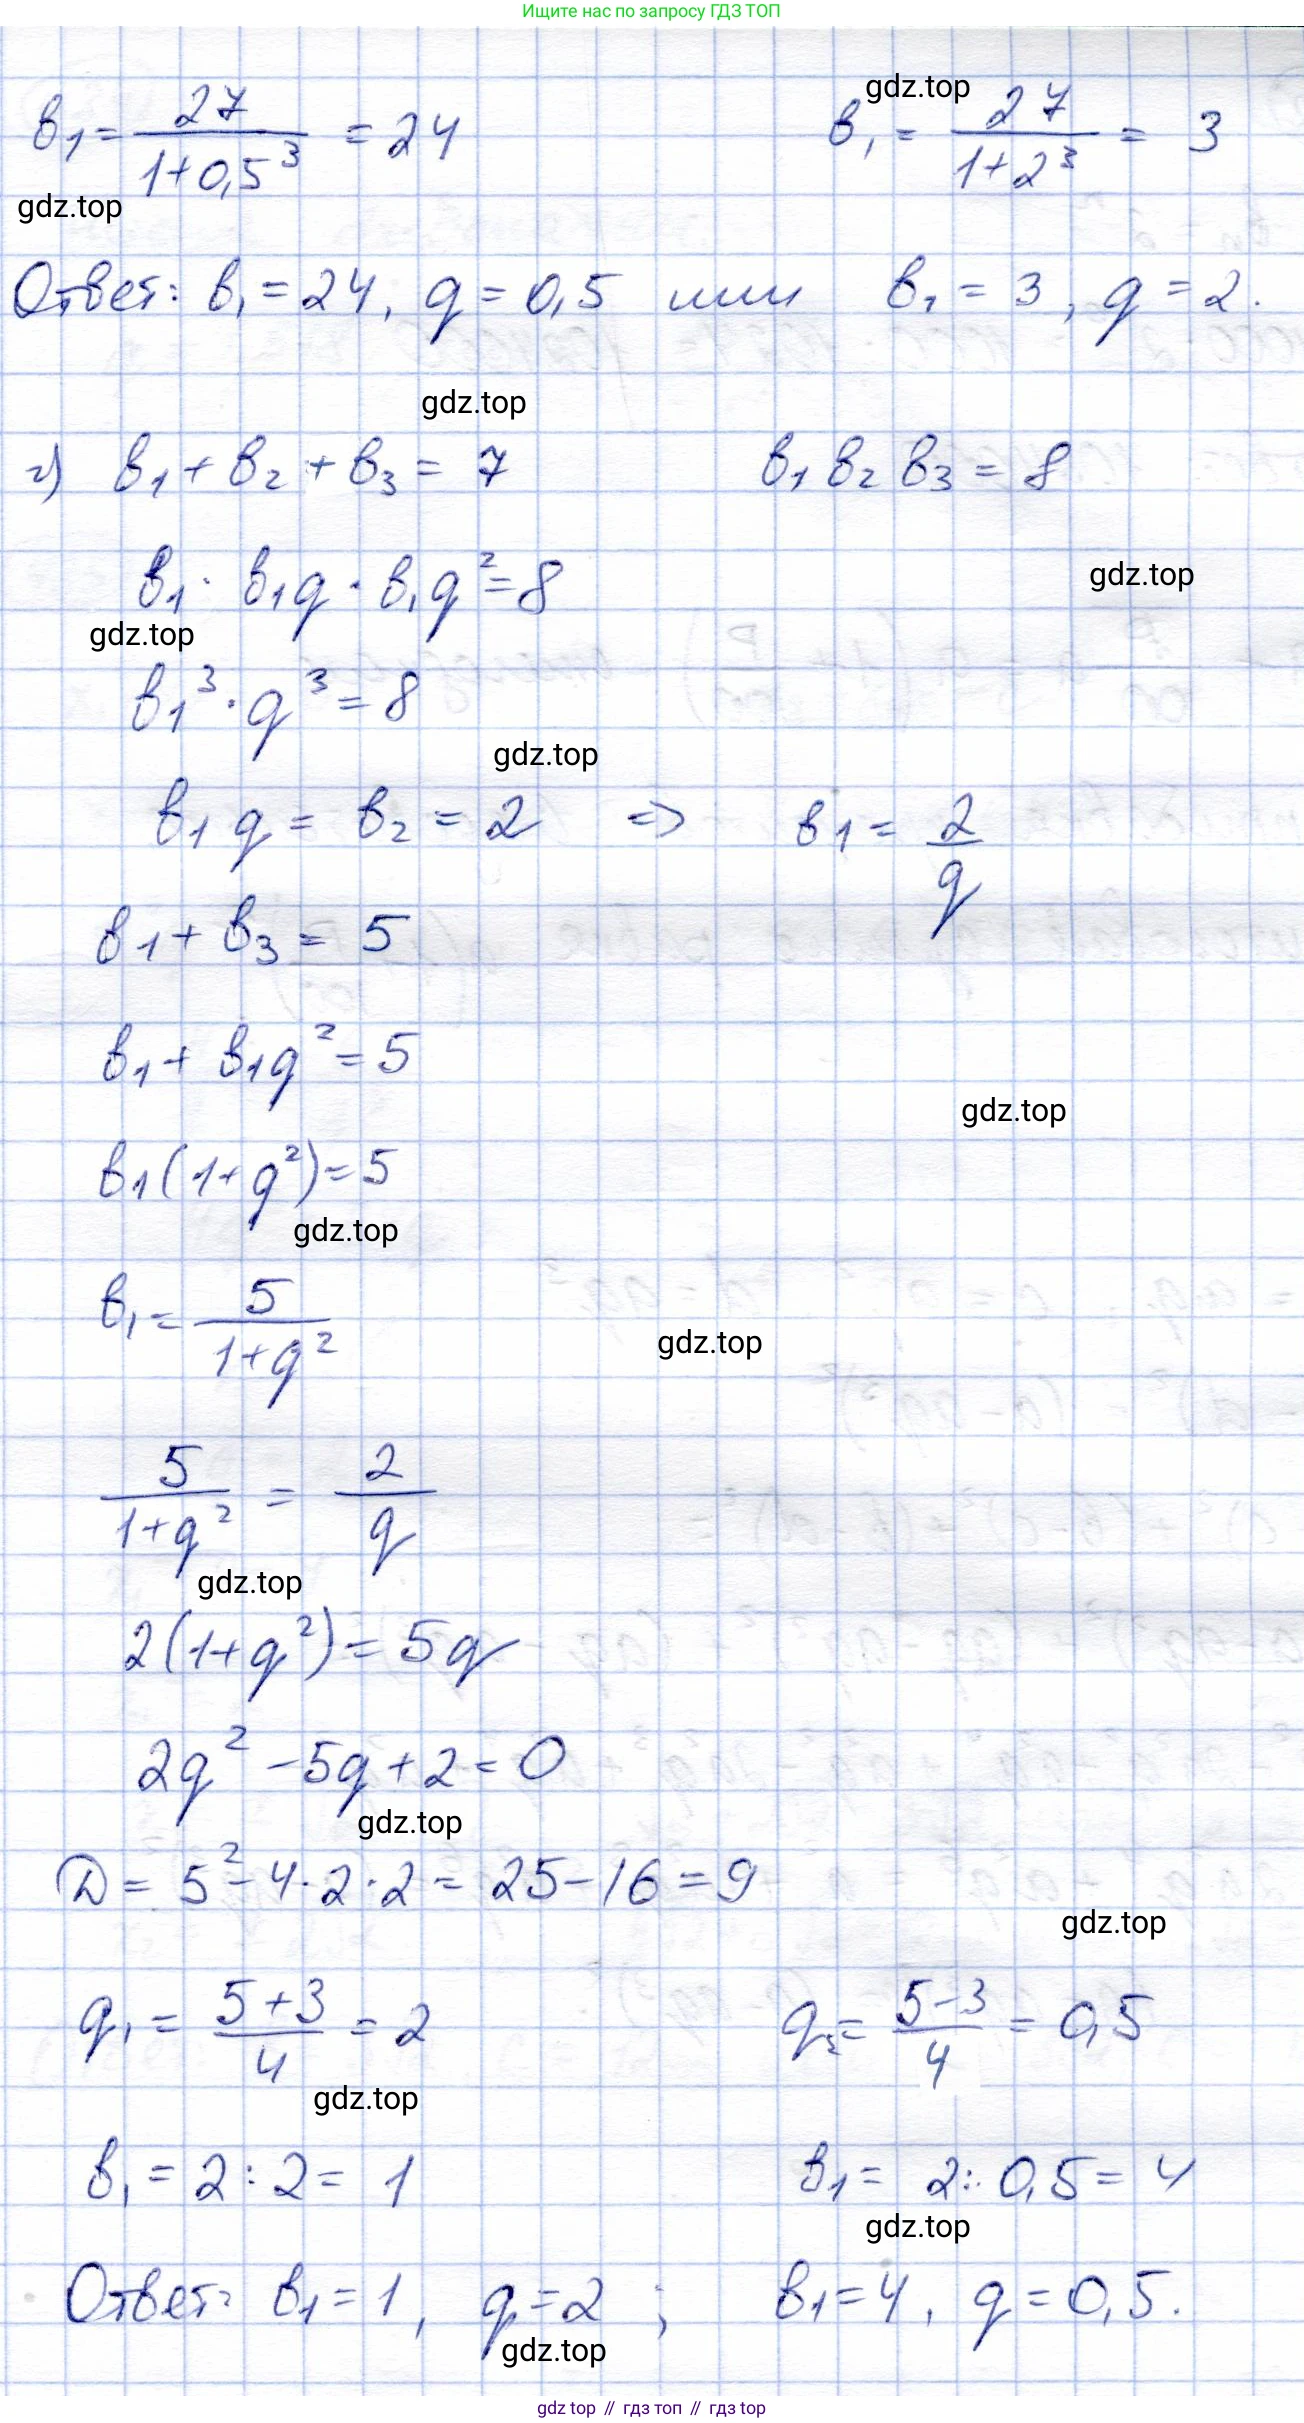 Ищите нас по запросу ГДЗ ТОП
в₁ = 27/(1+0,5³) = 24    в₁ = 27/(1+2³) = 3
gdz.top
gdz.top
Ответ: в₁ = 24, q = 0,5 или в₁ = 3, q = 2.
gdz.top
г) в₁ + в₂ + в₃ = 7    в₁ в₂ в₃ = 8
в₁ · в₁q · в₁q² = 8
gdz.top
gdz.top
в₁³ · q³ = 8
gdz.top
в₁ q = в₂ = 2 => в₁ = 2/q
в₁ + в₃ = 5
в₁ + в₁q² = 5
gdz.top
в₁(1+q²) = 5
gdz.top
в₁ = 5/(1+q²)
gdz.top
5/(1+q²) = 2/q
gdz.top
2(1+q²) = 5q
2q² - 5q + 2 = 0
gdz.top
D = 5² - 4·2·2 = 25 - 16 = 9
gdz.top
q₁ = (5+3)/4 = 2    q₂ = (5-3)/4 = 0,5
gdz.top
в₁ = 2 : 2 = 1    в₁ = 2 : 0,5 = 4
gdz.top
Ответ: в₁ = 1, q = 2 ; в₁ = 4, q = 0,5.
gdz.top
gdz top // гдз топ // гдз top